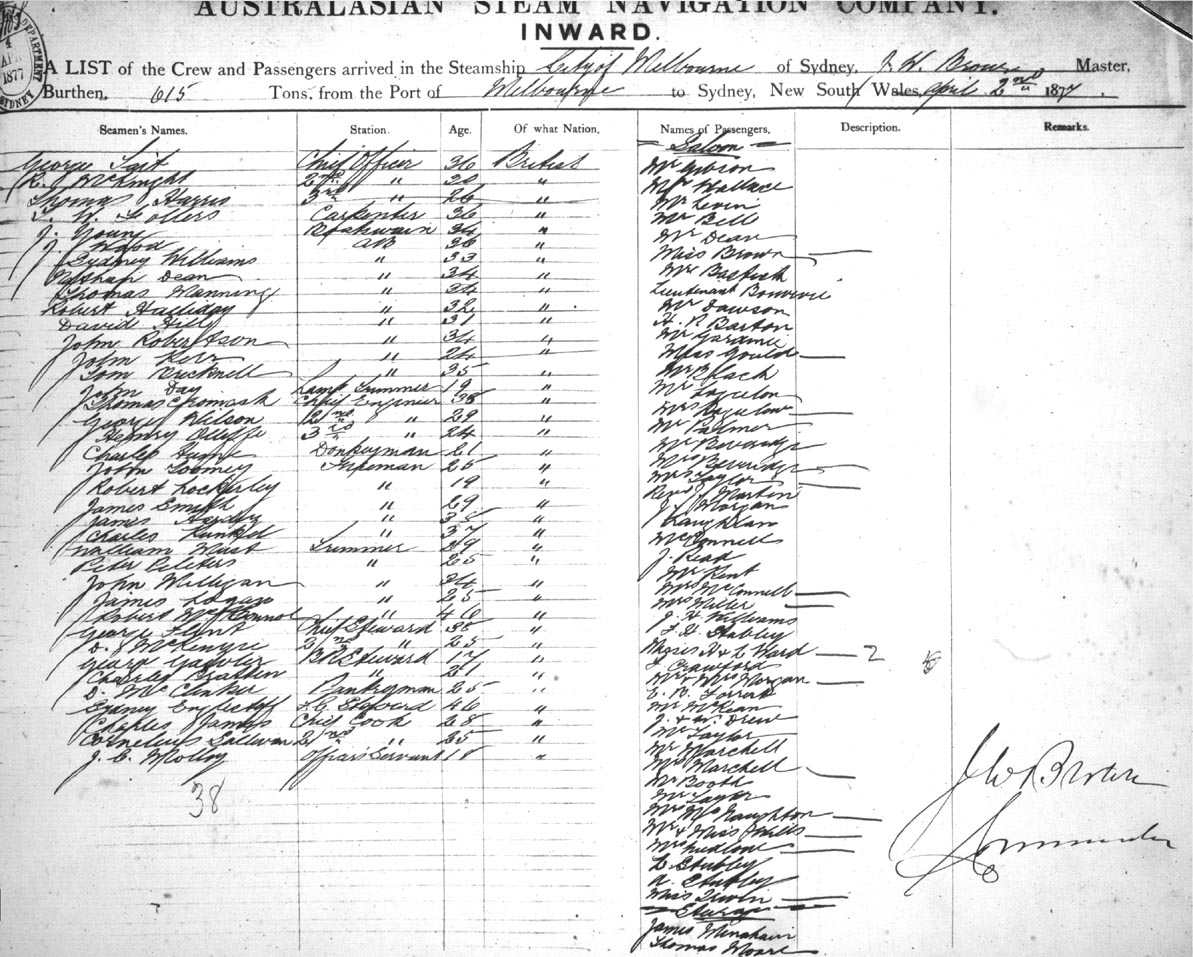 AUSTRALASIAN STEAM NAVIGATION COMPANY.
INWARD.
A LIST of the Crew and Passengers arrived in the Steamship City of Melbourne of Sydney, J. W. Brown Master,
Burthen, 615 Tons, from the Port of Melbourne to Sydney, New South Wales, April 2nd 1877.
DEPARTMENT
4
1877
SYDNEY
Seamen's Names. Station. Age. Of what Nation, Names of Passengers, Description. Remarks.
Saloon
George Chief Officer 36 British Mr Gibson
McKnight 2nd " 30 " Mr Wallace
Thomas Harris 3rd " 26 " Mr Levin
W. Carpenter 36 " Mr Bell
J. Young Boatswain 34 " Mr Dean
J. Wood AB 36 " Miss Brown
Sydney Williams " 33 " Mr
Dean " 34 " Lieutenant Bouverie
Thomas Manning " " Mr Dawson
Robert Halliday " 32 " H. P. Barton
David Hill " 31 " Mr
John Robertson " 34 " Miss Gould
John Kerr " 24 "
Tom Bucknell " 35 " Mr
John Day Lamp Trimmer 19 " Mrs
Thomas Chief Engineer 38 " Mr Palmer
George Wilson 2nd " 29 " Mr Beveridge
Henry 3rd " 24 " Mrs Beveridge
Charles Donkeyman 21 " Mrs Taylor
John Toomey Fireman 25 " Revd J. Martin
Robert Lockerley " 19 " J. Morgan
James Smith " 29 " Laughlan
James " 35 " McConnell
Charles Kunkel " 37 " J. Read
William West Trimmer 29 " Mr Kent
Peter Peters " 25 " Mrs McConnell
John Milligan " 24 " Mrs Miller
James Logan " 25 " J. H. Williams
Robert McConnol " 46 " F. H. Stabley
George Flint Chief Steward 38 " Misses A & L Ward 2
D. McKenzie 2nd " 25 " J Crawford
George B.R. Steward 17 " Mr & Mrs Morgan
Charles Bratten " 21 " E. R.
D. McClinker Pantryman 25 " Mr McKean
Sydney F.C. Steward 46 " J. & W. Drew
Charles James Chief Cook 28 " Mr Taylor
Cornelius Sullivan 2nd " 25 " Mr Marchell
J. C. Molloy Officers Servant 18 " Mrs Marchell
38
Mr Booth
Mr
Mrs McNaughton
Mr & Miss Mills
Mrs
L. Stubley
A. Stubley
Miss
Steerage
James
Thomas Moore
J W Brown
Commander